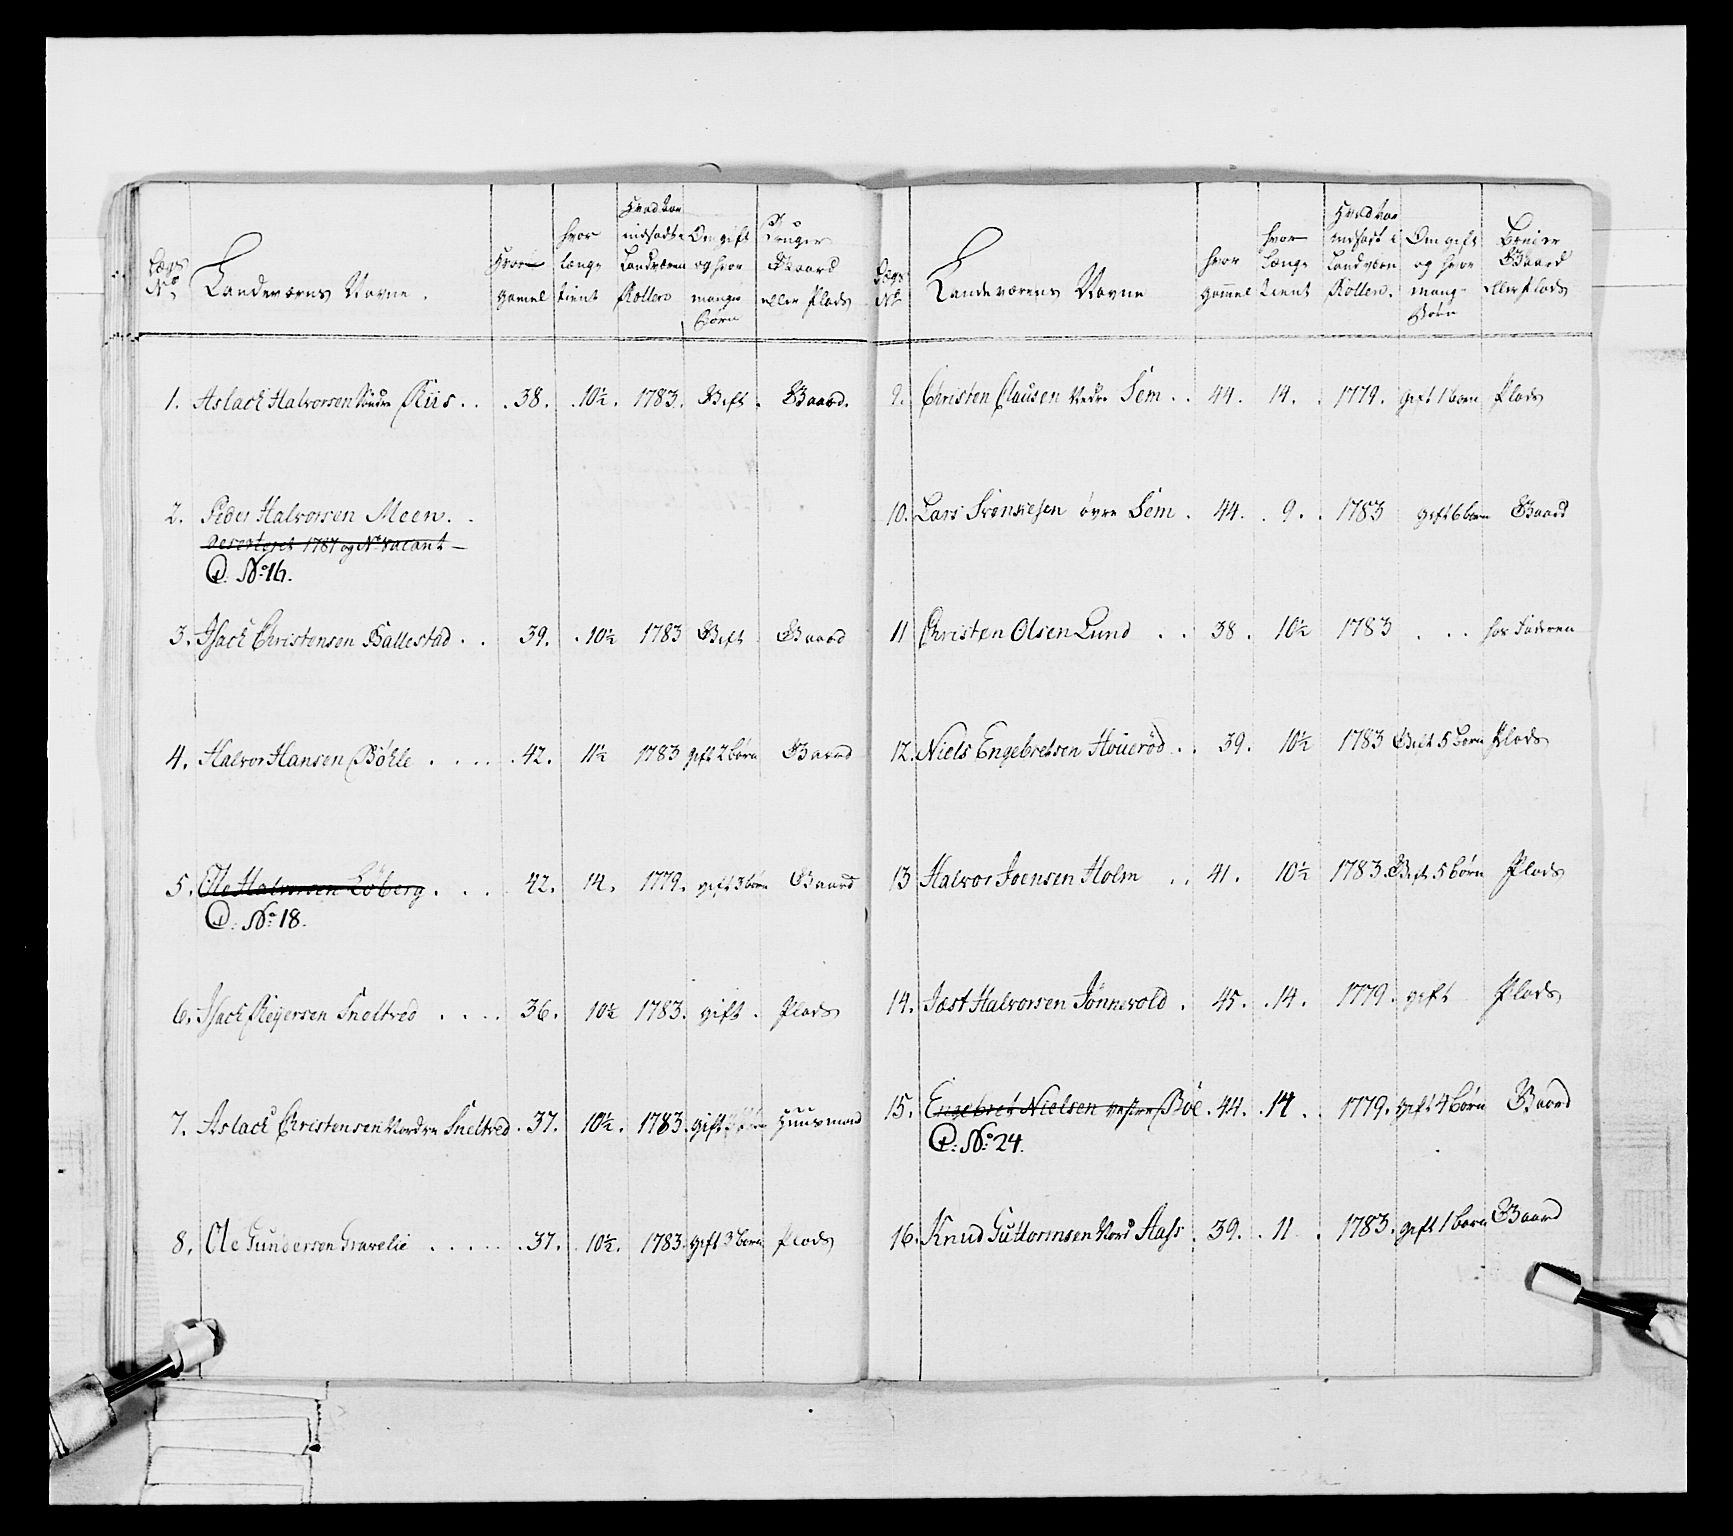 Lægs No. Landeværns Navne. Hvor gamel hvor længe tient Hvad Aar indsadt i Landværn Rollen Om gift og hvor mange Børn Bruger Gaard eller Plads
1. Aslach Halvorsen Søndre Riis . . 38. 10½. 1783. Gift . Gaard.
2. Peder Halvorsen Meen. .
deserteret 1787 og No. vacant —
No. 16.
3. Isach Christensen Ballestad . . 39. 10½ 1783 Gift Gaard
4. Halvor Hansen Bøhle . . . . 42. 11½ 1783 gift 2 børn Gaard
5. Ole Halvorsen Løberg . . . 42. 14. 1779. gift 3 børn Gaard
No. 18.
6. Isach Reyersen Sneltved . . . . 36. 10½ 1783. gift . Plads
7. Aslach Christensen Nordre Sneltved . 37. 10½. 1783. gift Huusmand
8. Ole Gundersen Gravelie . . . . . 37. 10½. 1783. gift 3 børn Plads
Lægs No. Landeværens Navne hvor gammel hvor Længe tient Hvad Aar indsadt i Landværn Rollen. Om gift og hvor mange Børn Bruger Gaard eller Plads
9. Christen Clausen Nedre Sem . . 44. 14. . 1779. gift 1 børn Plads
10. Lars Svensk̶e̶sen øvre Sem . 44. . 9. . 1783 gift 6 børn Gaard
11 Christen Olsen Lund . . 38. 10½ 1783 . . . hos Faderen
12. Niels Engebretsen Houerød . . 39. 10½ 1783 Gift 5 børn Plads
13 Halvor Joensen Holm . . 41. 10½ 1783. Gift 5 børn Plads
14. Jæst Halvorsen Jønnevold . 45. . 14. 1779. gift Plads
15. Engebret Nielsen vestre Bøe . 44. . 14 . . 1779. gift 4 børn Gaard
No. 24.
16. Knud Guttormsen Nord Aass . 39. . 11 . 1783. gift 1 børn Gaard